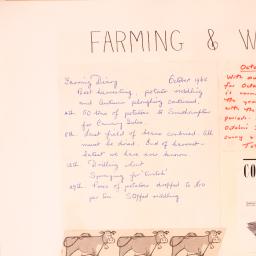 FARMING & W
Farming Diary October 1966
Beet harvesting, potato riddling
and Autumn ploughing continued.
4th 50 tons of potatoes to
for Canning Sales.
8th Last field of beans combined. All
must be dried. End of harvest -
latest we have ever known.
12th Drilling wheat
Spraying for
29th Price of potatoes dropped to £10
per ton. Stopped riddling.
Octo
With
for Octo
is
the yea
with the
period.
October
every
To
CO